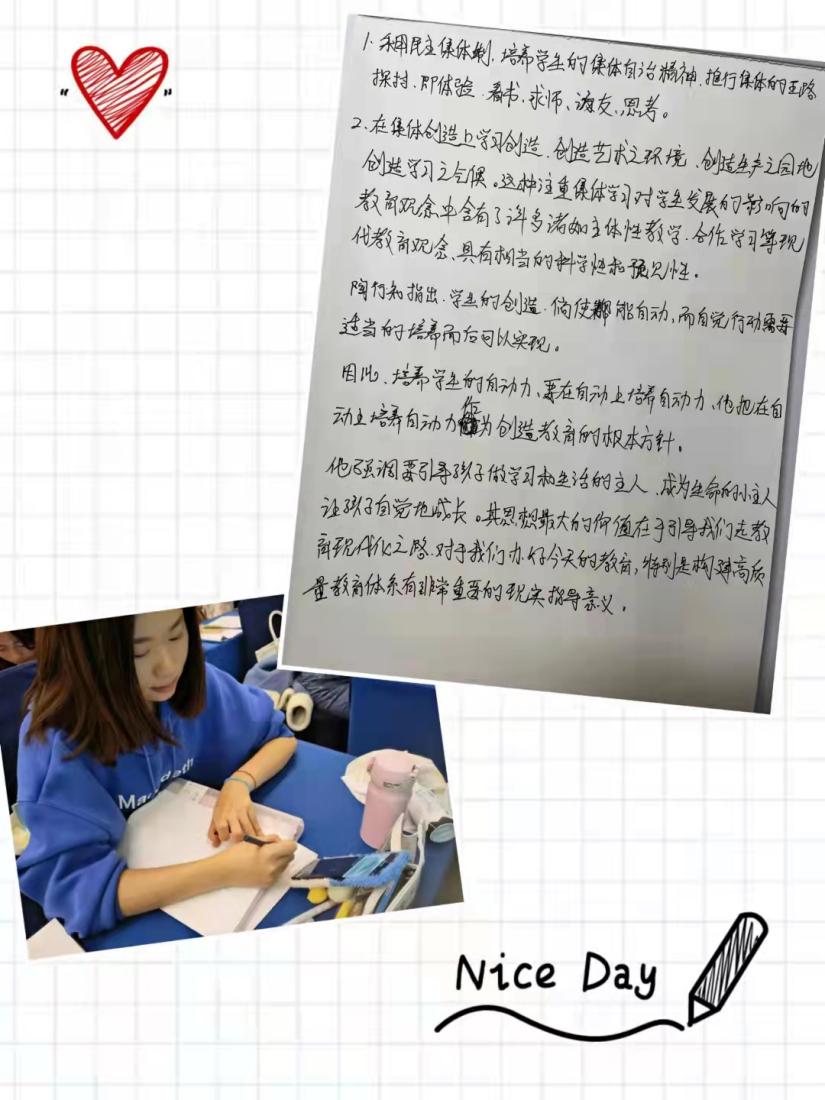 1. 利用民主集体制,培养学生的集体自治精神,推行集体的五路
探讨,即体验、看书、求师、访友、思考。
2、在集体创造上学习创造,创造艺术之环境、创造生产之园地
创造学习之气候。这种注重集体学习对学生发展的影响的
教育观念中含有了许多诸如主体性教学、合作学习等现
代教育观念、具有相当的科学性和预见性。
陶行知指出,学生的创造,倘使都能自动,而自觉行动需要
适当的培养而后可以实现。
因此、培养学生的自动力、要在自动上培养自动力、他把在自
动上培养自动力作为创造教育的根本方针。
他强调要引导孩子做学习和生活的主人、成为生命的小主人
让孩子自觉地成长。其思想最大的价值在于引导我们走教
育现代化之路,对于我们办好今天的教育,特别是构建高质
量教育体系有非常重要的现实指导意义。
Nice Day